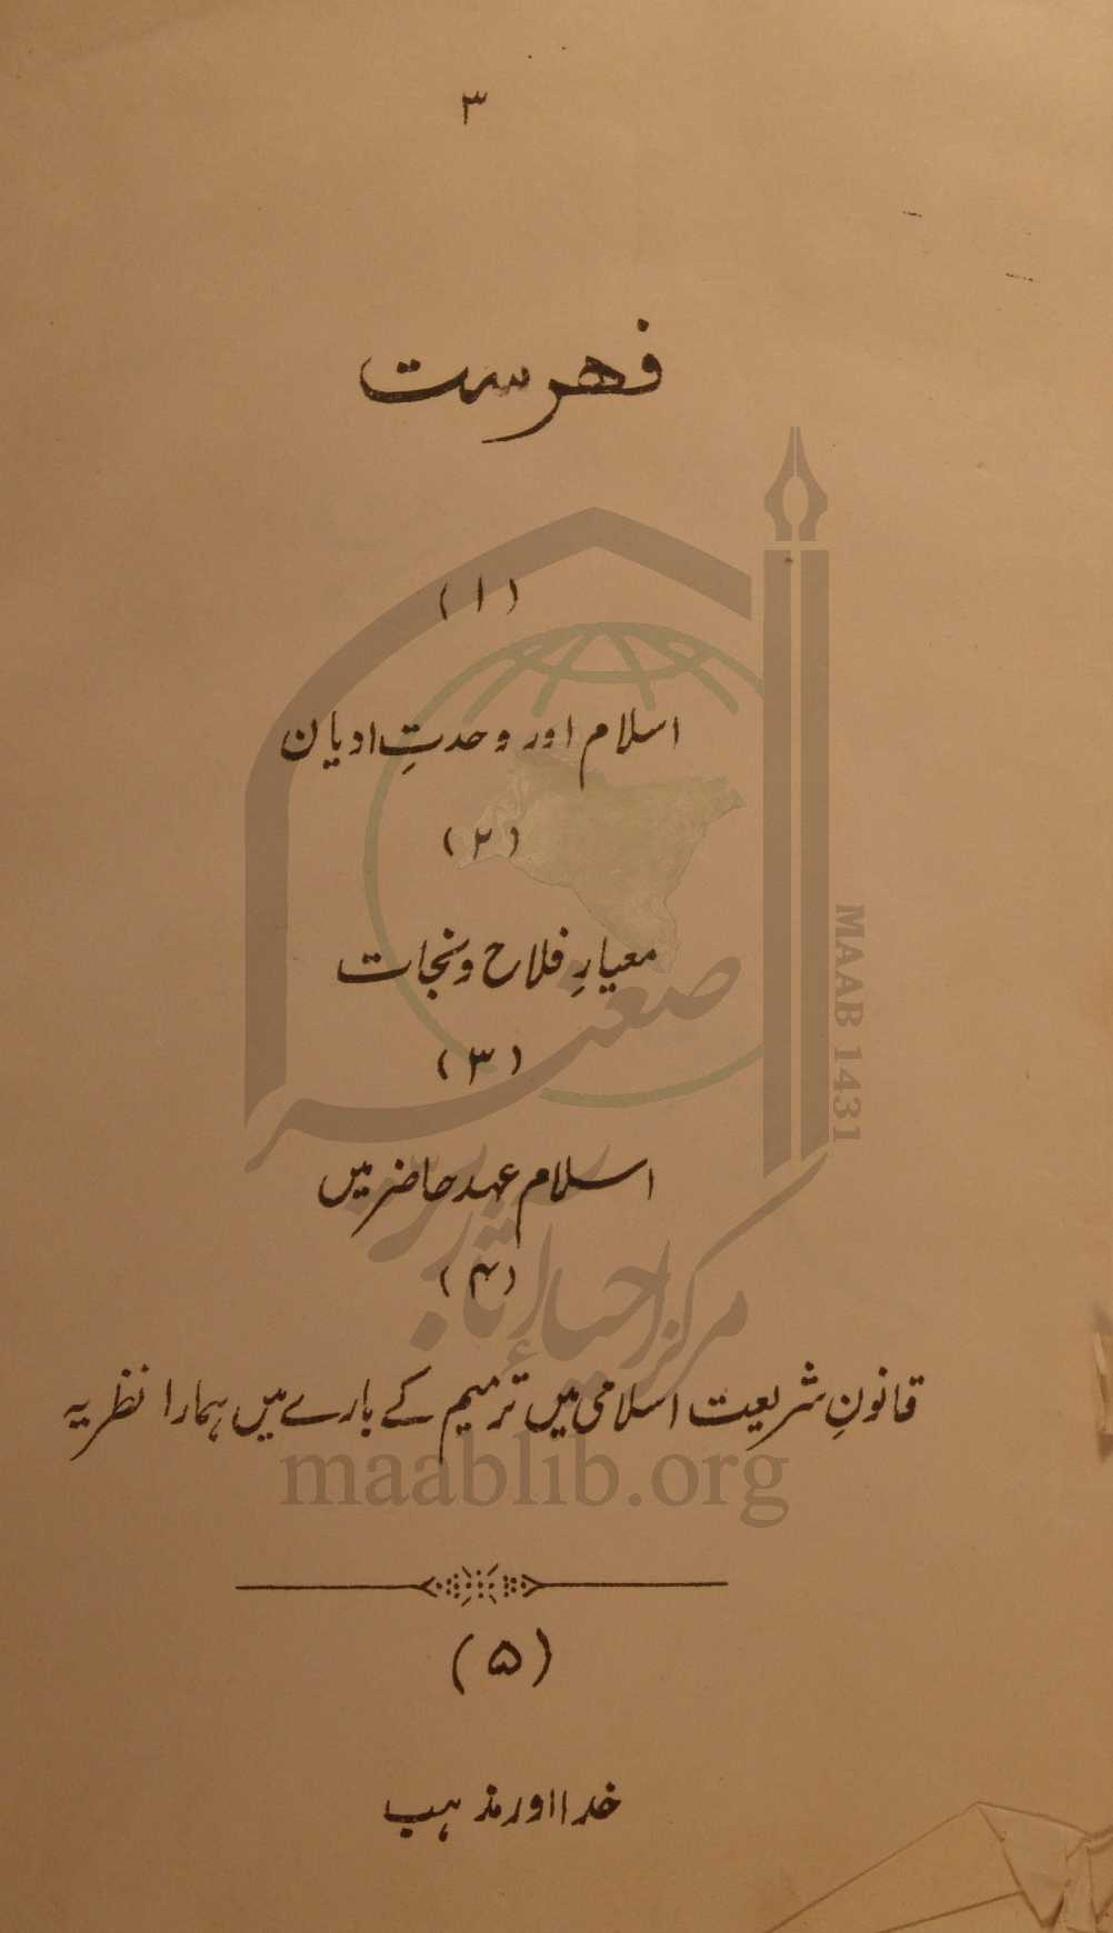 ۳
فهرست
(۱)
اسلام اور وحدتِ ادیان
(۲)
معیارِ فلاح و نجات
(۳)
اسلام عہد حاضر میں
(۴)
قانونِ شریعت اسلامی میں ترمیم کے بارے میں ہمارا نظریہ
(۵)
خدا اور مذہب
MAAB 1431
مرکز احیاء آثار
maablib.org